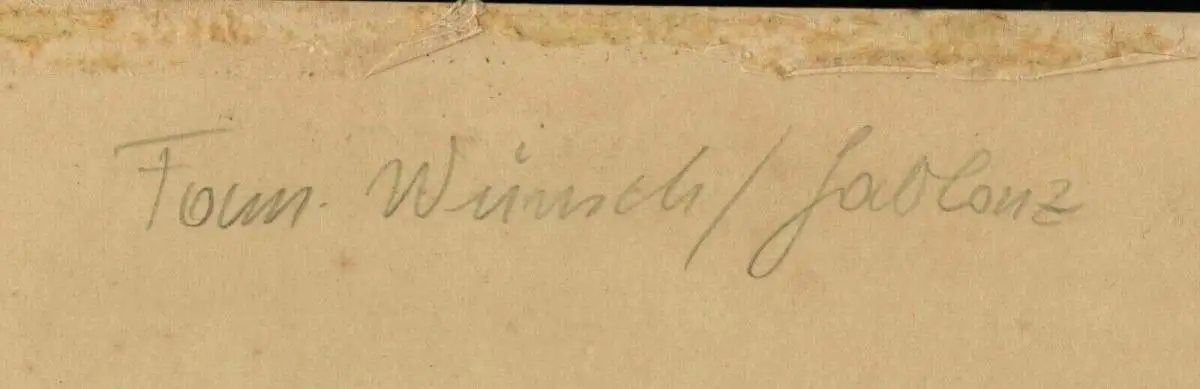 Fam. Wünsch / Gablonz